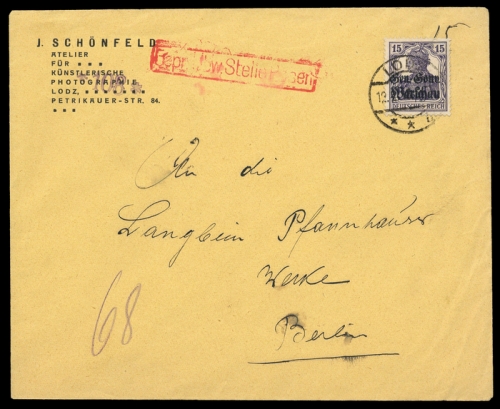 J. SCHÖNFELD
ATELIER
FÜR
KÜNSTLERISCHE
PHOTOGRAPHIE
LODZ,
PETRIKAUER-STR. 84.
15
15 15
Gen.-Gouv.
Warschau
DEUTSCHES REICH
An die
Langbein Pfannhauser
Werke
Berlin
68